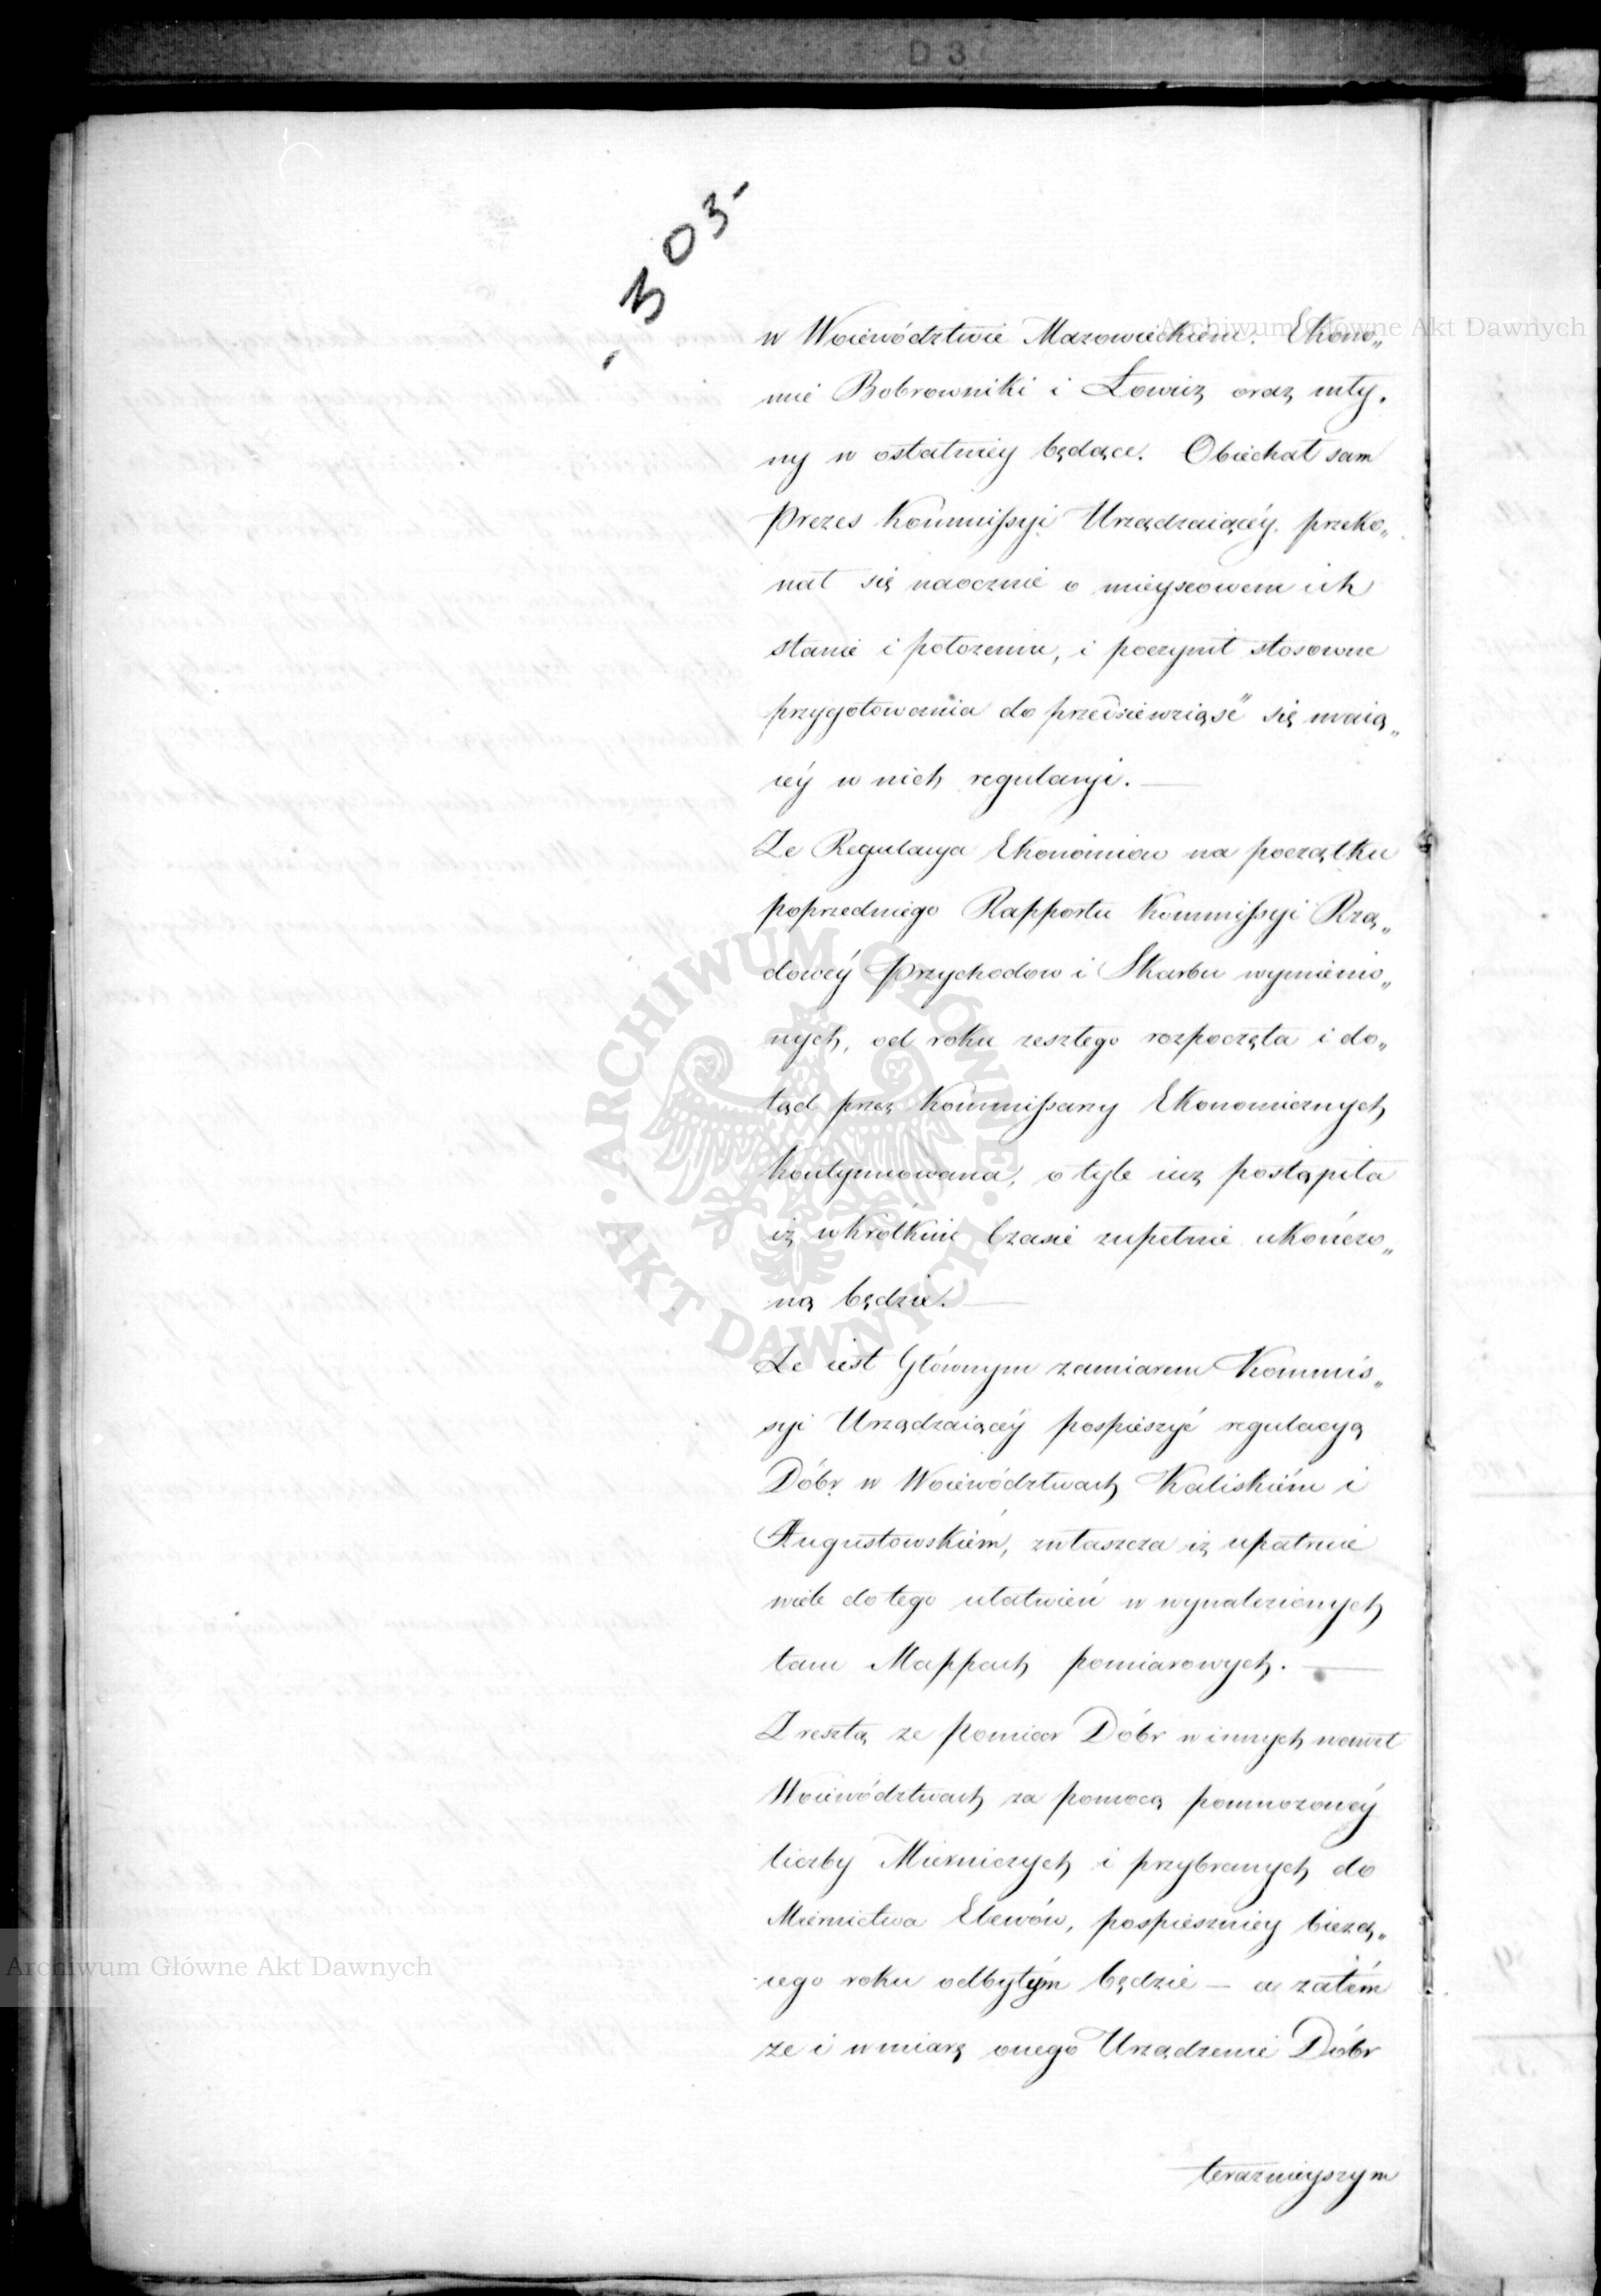 D 3
- 303 -
w Woiewództwie Mazowieckiem. Ekono„
Archiwum Główne Akt Dawnych
mie Bobrowniki i Łowicz oraz mły„
ny w ostatniey będące. Obiechał sam
Prezes Kommissyi Urządzaiącéy, przeko„
nał się naocznie o mieyscowem ich
stanie i położeniu, i poczynił stosowne
przygotowania do przedsiewziąść się maią„
céy w nich regulacyi. —
Ze Regulacya Ekonomiow na początku
poprzedniego Rapportu Kommissyi Rzą„
dowéy Przychodow i Skarbu wymienio„
nych, od roku zeszłego rozpoczęta i do„
tąd przez Kommissarzy Ekonomicznych
kontynuowana, o tyle iuż postąpiła
iż wkrótkim Czasie zupełnie ukończo„
ną będzie. —
ARCHIWUM GŁÓWNE · AKT DAWNYCH ·
Ze iest Głównym zamiarem Kommis„
syi Urządzaiącéy pospieszyć regulacyą
Dóbr w Woiewództwach Kaliskiém i
Augustowskiém, zwłaszcza iż upatruie
wiele do tego ułatwień w wynalezionych
tam Mappach pomiarowych. —
Z resztą ze Pomiar Dóbr w innych nawet
Woiewództwach za pomocą pomnożonéy
liczby Mierniczych i przybranych do
Miernictwa Elewów, pospieszniey bieżą„
cego roku odbytym będzie — a zatém
Archiwum Główne Akt Dawnych
ze i w miarę onego Urządzenie Dóbr
teraznieyszym